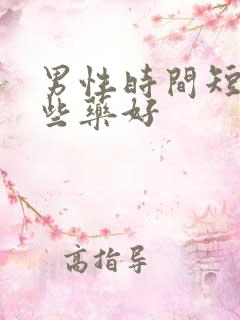 男性時間短
些藥好
高指导